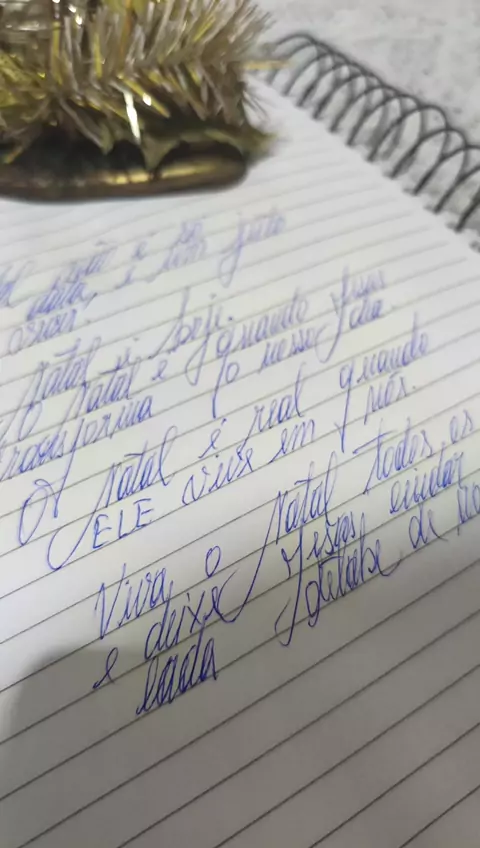 não é só
data, é um jeito
Natal é hoje.
O Natal é quando Jesus
transforma o nosso dia
O Natal é real quando
ELE vive em nós.
Viva o Natal todos os
e deixe Jesus cuidar
cada detalhe de